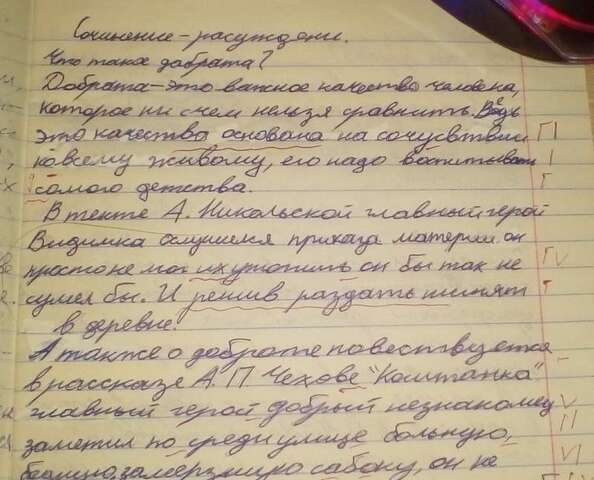 Сочинение-расуждени.
Что такое добрата?
Добрата-это важное качество человека,
которое ни с чем нельзя сравнить. Ведь
это качества основана на сочусвтвии
ко всему живому, его надо воспитывать
с самого детства.
В тексте А. Никольской главный герой
Видимка ослушился приказа матери он
просто не мог их утопить он бы так не
сумел бы. И решив раздать котят
в деревне.
А также о доброте повествуется
в рассказе А.П Чехове "Каштанка"
главный герой добрый незнакомец
заметил по среди улице больную,
замерзшую сабаку, он не